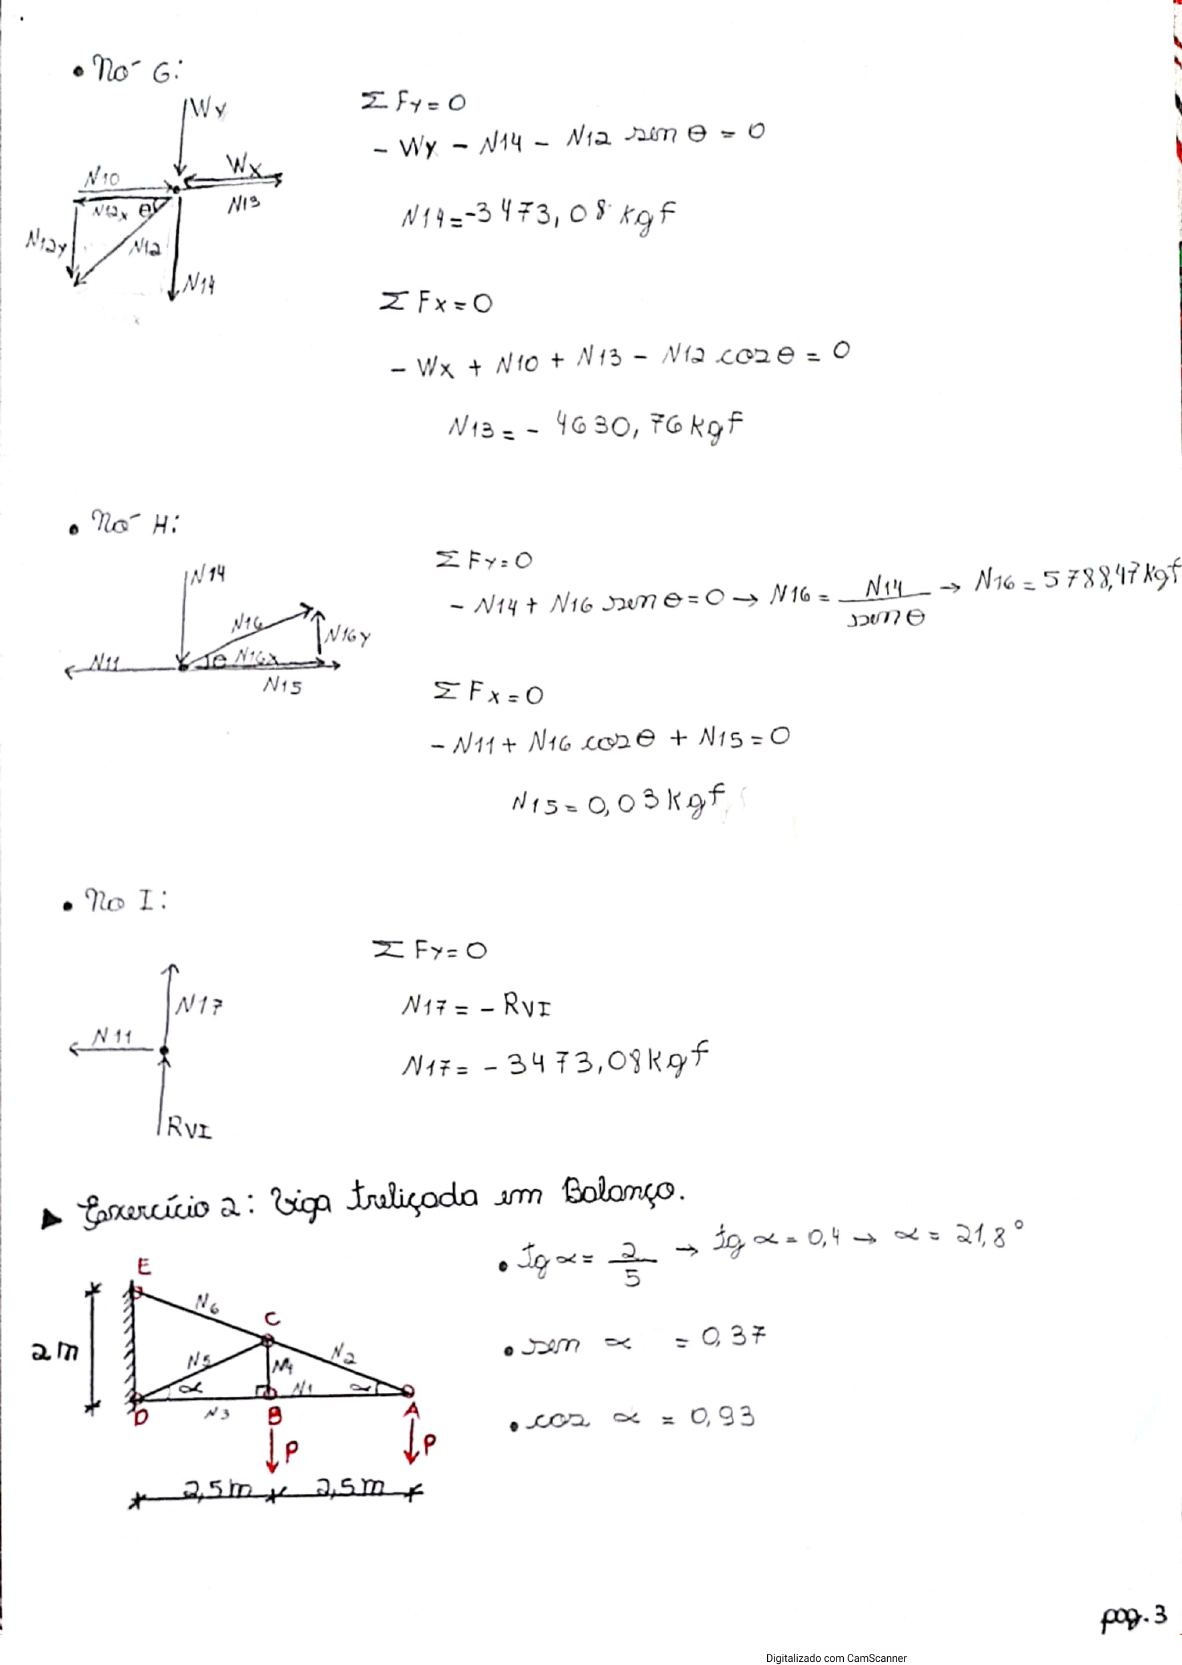 • Nó G:
Wy
Wx
N10
N13
N12x θ
N12y
N12
N14
Σ Fy = 0
- Wy - N14 - N12 sen θ = 0
N14 = -3473,08 kgf
Σ Fx = 0
- Wx + N10 + N13 - N12 cos θ = 0
N13 = - 4630,76 kgf
• Nó H:
N14
N16
N16y
N11
θ N16x
N15
Σ Fy = 0
- N14 + N16 sen θ = 0 → N16 = N14 / sen θ → N16 = 5788,47 kgf
Σ Fx = 0
- N11 + N16 cos θ + N15 = 0
N15 = 0,03 kgf
• No I:
N17
N11
RVI
Σ Fy = 0
N17 = - RVI
N17 = - 3473,08 kgf
► Exercício 2: Viga treliçada em Balanço.
E
N6
C
2m
N5
N4
N2
α
N1
α
D
N3
B
A
P
P
2,5m
2,5m
• tg α = 2 / 5 → tg α = 0,4 → α = 21,8°
• sen α = 0,37
• cos α = 0,93
pag. 3
Digitalizado com CamScanner